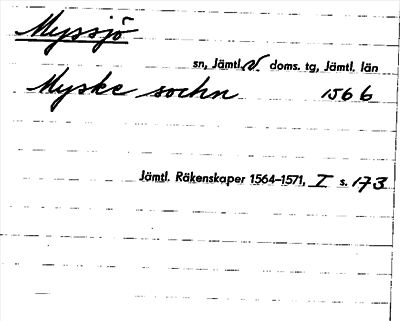 Myssjö
sn, Jämtl. V. doms. tg, Jämtl. län
Myske sochn 1566
Jämtl. Räkenskaper 1564–1571, I s. 173